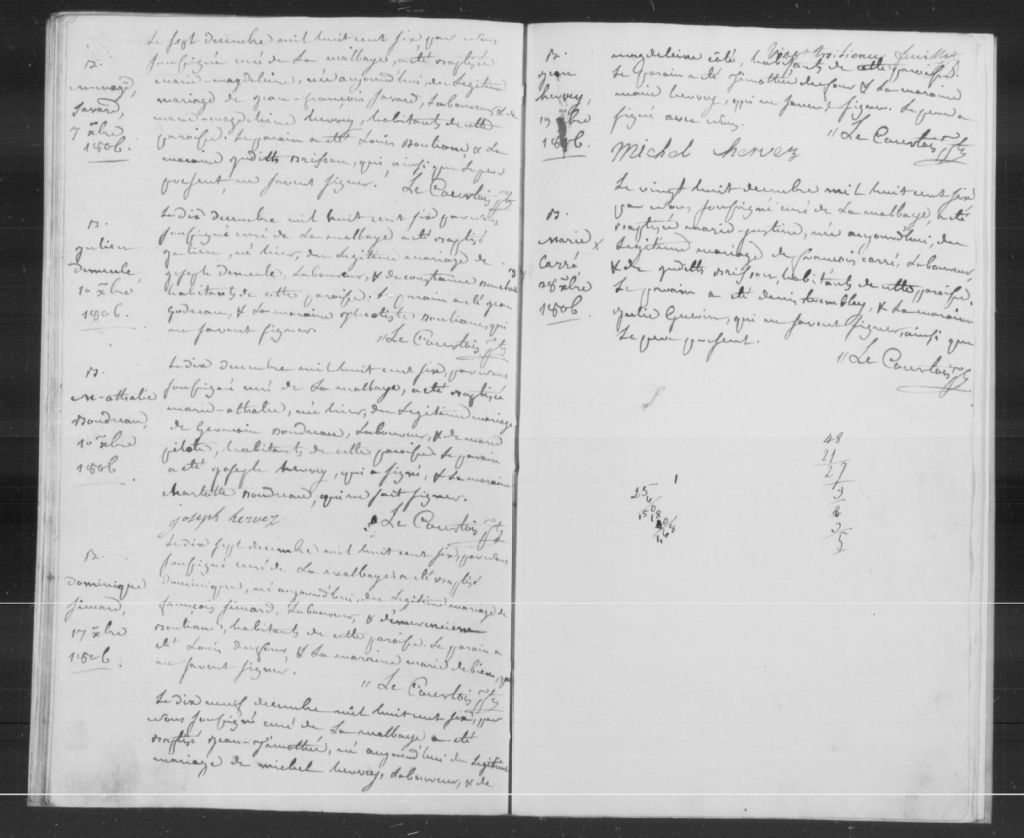 Le sept decembre mil huit cent six, par nous
soussigné curé de La malbaye, a eté baptisée
B.
marie-magdeleine, née aujourd'hui, du Legitime
Savard,
mariage de jean-françois Savard, Laboureur, & de
7 xbre
marie-magdeleine hervey, habitants de cette
1806.
paroisse. Le parain a eté Louis Bouliane & La
maraine judith Brisson, qui, ainsi que Le pere
present, ne savent signer. Le Courtois ptre
Le dix decembre mil huit cent six par nous
soussigné curé de La malbaye a eté baptisé
B.
julien
julien, né hier, du Legitime mariage de
Demeule,
joseph Demeule, Laboureur, & de constance
10 xbre
habitants de cette paroisse. Le parain a eté jean
1806.
godreau, & La maraine Bouliane, qui
ne savent signer.
// Le Courtois ptre
Le dix decembre mil huit cent six, par nous
B.
soussigné curé de La malbaye, a eté baptisée
M-athalie
marie-athalie, née hier, du Legitime mariage
Boudreau,
de Germain Boudreau, Laboureur, & de marie
10 xbre
pilote, habitants de cette paroisse. Le parain
1806
a eté joseph hervey, qui a signé, & La maraine
charlotte Boudreau, qui ne sait signer.
joseph hervez Le Courtois ptre
Le dix sept decembre mil huit cent six, par nous
B.
soussigné curé de La malbaye a eté baptisé
Dominique
dominique, né aujourd'hui, du Legitime mariage de
simard,
françois simard, Laboureur, & d'emerencienne
17 xbre
Bouliane, habitants de cette paroisse. Le parain a
1806.
eté Louis dufour, & La maraine marie debiens, qui
ne savent signer.
// Le Courtois ptre
Le dix neuf decembre mil huit cent six, par
nous soussigné curé de La malbaye a eté
baptisé Jean-Timothée, né aujourd'hui du Legitime
mariage de michel hervey, Laboureur, & de
feuillet
B.
magdeleine côté, habitants de cette paroisse.
jean
Le parain a eté Timothée dufour & La maraine
hervey,
marie hervey, qui ne savent signer. Le pere a
19 xbre
signé avec nous.
1806.
// Le Courtois ptre
Michel hervez
Le vingt huit decembre mil huit cent six
par nous soussigné curé de La malbaye, a eté
B.
baptisée marie-justine, née aujourd'hui, du
Marie
Legitime mariage de françois carré, Laboureur,
Carré
& de judith Brisson, habitants de cette paroisse.
28 xbre
Le parain a eté denis tremblay, & La maraine
1806.
julie Guerin, qui ne savent signer, ainsi que
Le pere present.
// Le Courtois ptre
48
21
27